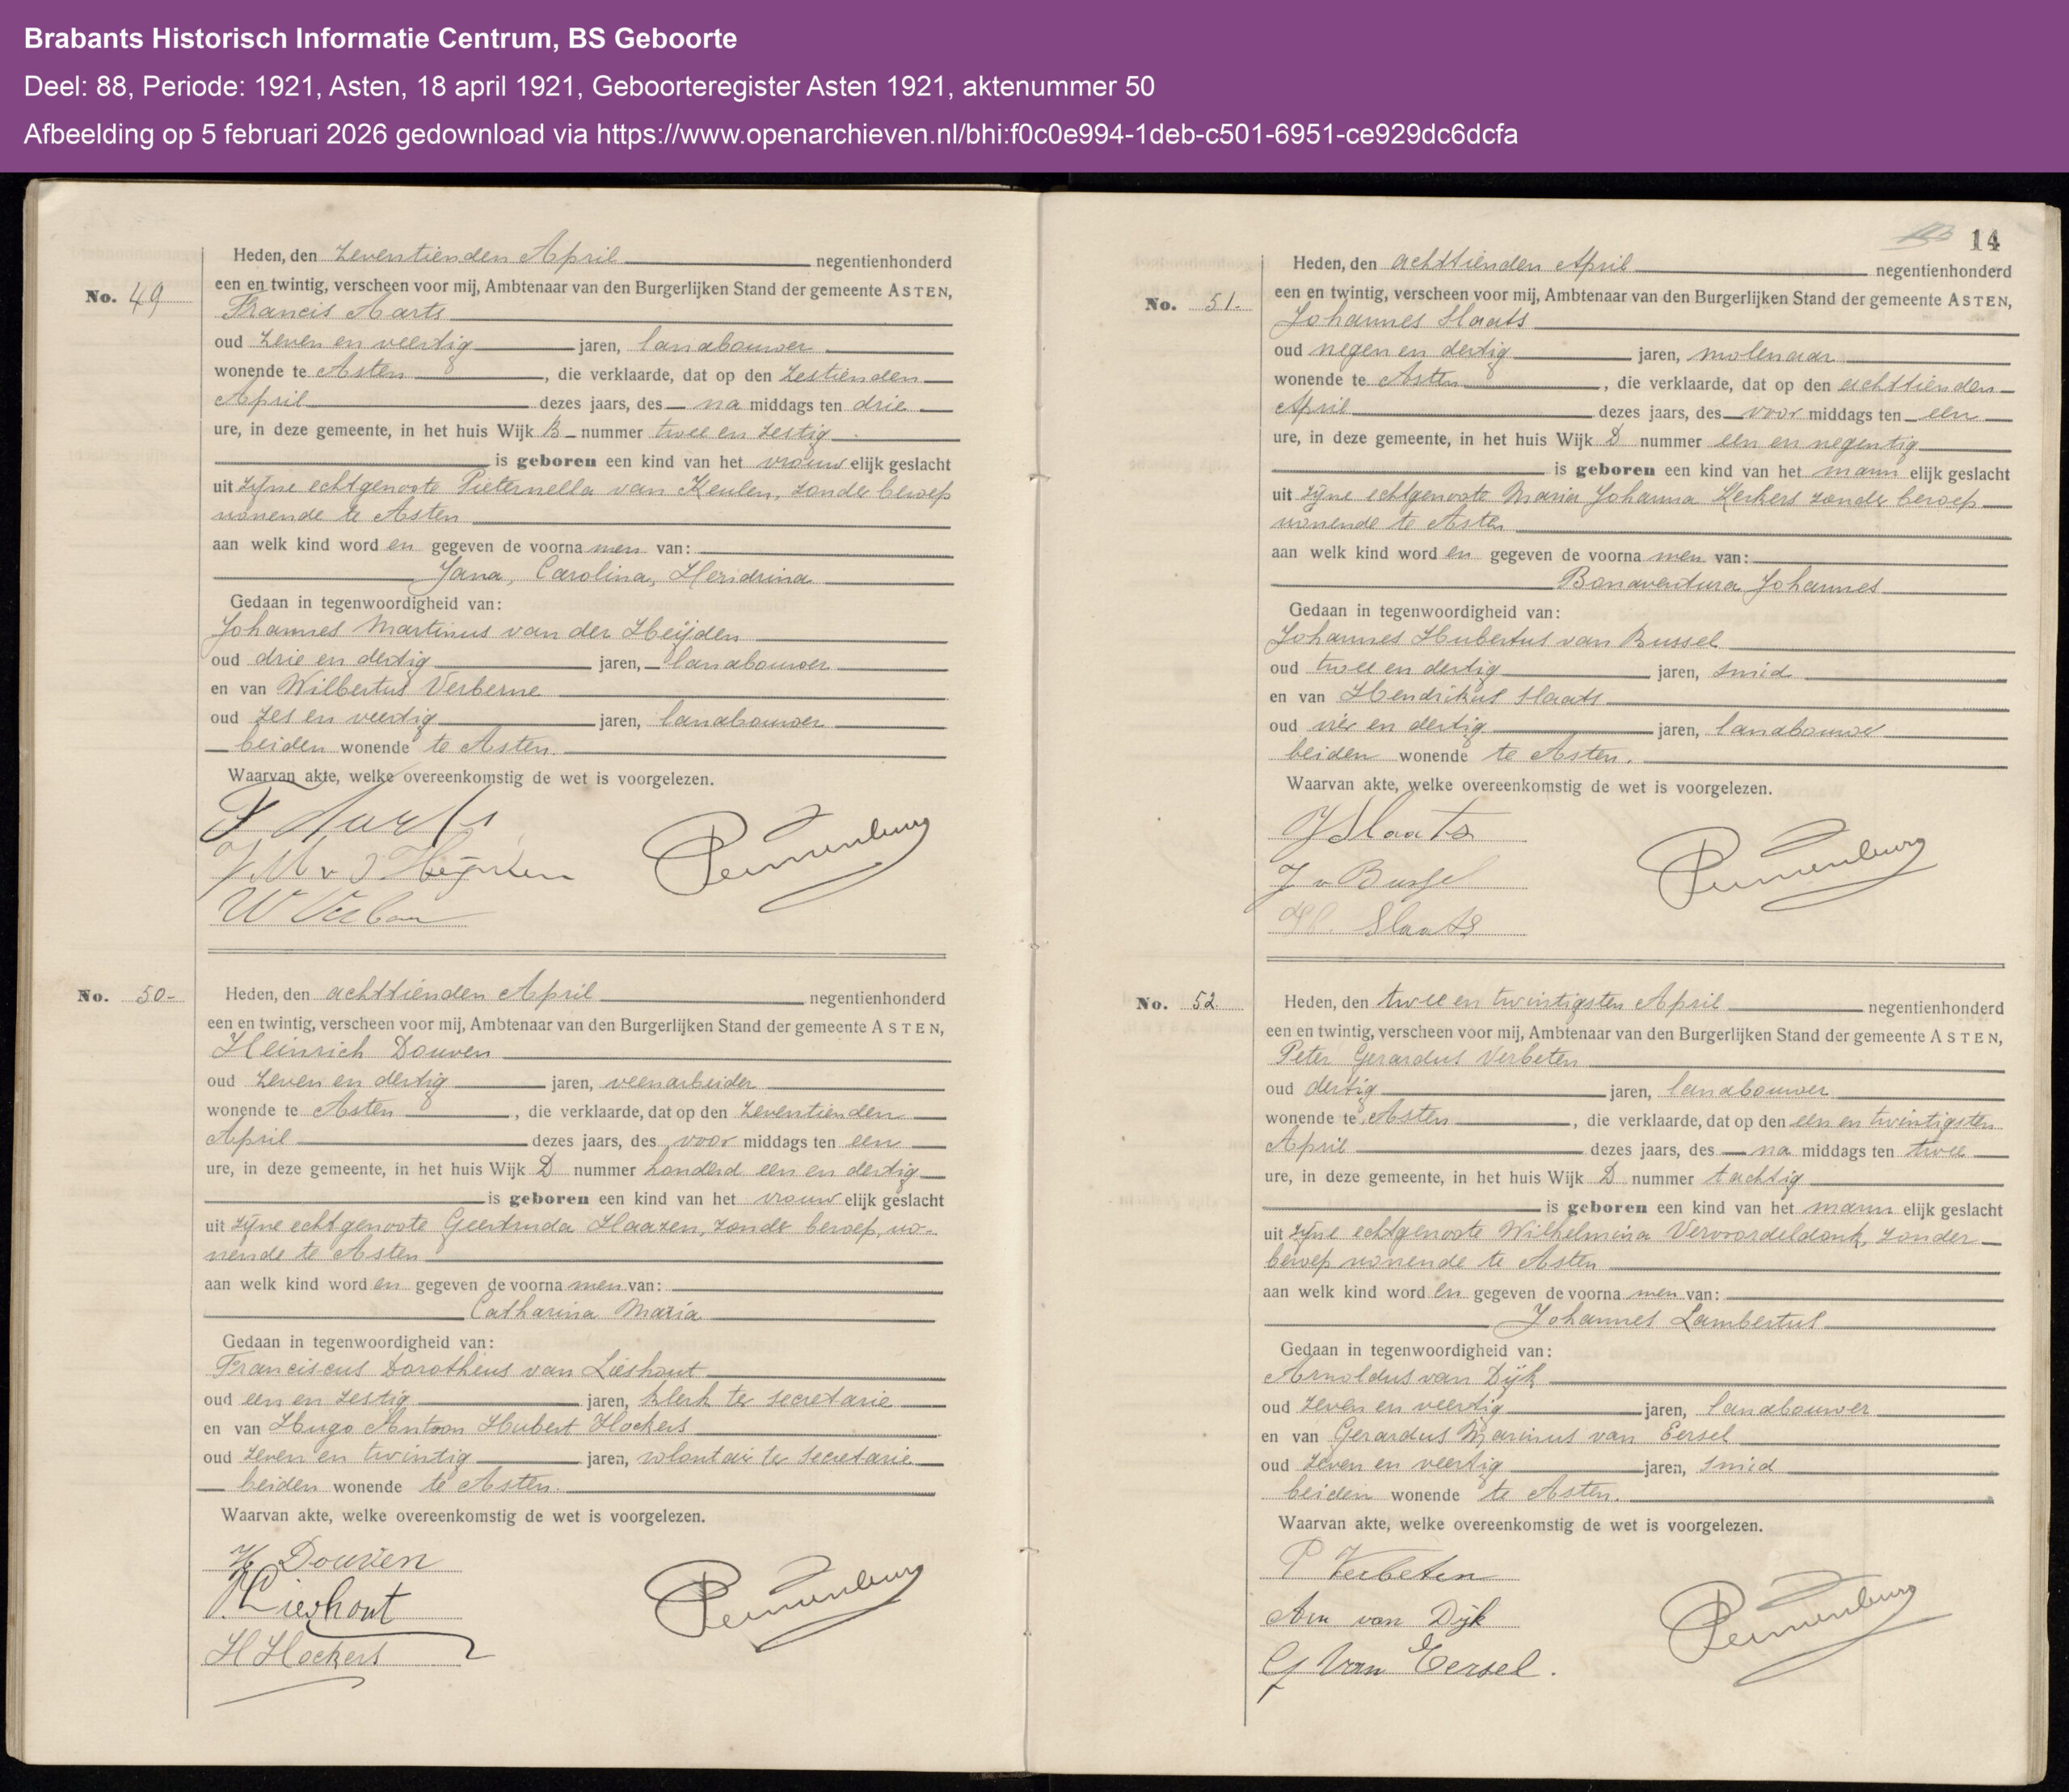 Brabants Historisch Informatie Centrum, BS Geboorte
Deel: 88, Periode: 1921, Asten, 18 april 1921, Geboorteregister Asten 1921, aktenummer 50
Afbeelding op 5 februari 2026 gedownload via https://www.openarchieven.nl/bhi:f0c0e994-1deb-c501-6951-ce929dc6dcfa
No. 49
Heden, den zeventienden April negentienhonderd
een en twintig, verscheen voor mij, Ambtenaar van den Burgerlijken Stand der gemeente ASTEN,
Francis Aarts
oud zeven en veertig jaren, landbouwer
wonende te Asten, die verklaarde, dat op den zestienden
April dezes jaars, des na middags ten drie
ure, in deze gemeente, in het huis Wijk B nummer twee en zestig
is geboren een kind van het vrouwelijk geslacht
uit zijne echtgenoote Pieternella van Keulen, zonder beroep
wonende te Asten
aan welk kind worden gegeven de voornamen van:
Jana, Carolina, Hendrina
Gedaan in tegenwoordigheid van:
Johannes Martinus van der Heijden
oud drie en dertig jaren, landbouwer
en van Wilbertus Verberne
oud zes en veertig jaren, landbouwer
beiden wonende te Asten.
Waarvan akte, welke overeenkomstig de wet is voorgelezen.
F Aarts
J. M v d Heijden
W Verber
No. 50-
Heden, den achttienden April negentienhonderd
een en twintig, verscheen voor mij, Ambtenaar van den Burgerlijken Stand der gemeente ASTEN,
Heinrich Douven
oud zeven en dertig jaren, veenarbeider
wonende te Asten, die verklaarde, dat op den zeventienden
April dezes jaars, des voor middags ten een
ure, in deze gemeente, in het huis Wijk D nummer honderd een en dertig
is geboren een kind van het vrouwelijk geslacht
uit zijne echtgenoote Geertruda Haazen, zonder beroep, wo-
nende te Asten
aan welk kind worden gegeven de voornamen van:
Catharina Maria
Gedaan in tegenwoordigheid van:
Franciscus Dorotheus van Lieshout
oud een en zestig jaren, klerk ter secretarie
en van Hugo Antoon Hubert Hockers
oud zeven en twintig jaren, volontair ter secretarie
beiden wonende te Asten.
Waarvan akte, welke overeenkomstig de wet is voorgelezen.
H Douven
Lieshout
H Hockers
14
No. 51.
Heden, den achttienden April negentienhonderd
een en twintig, verscheen voor mij, Ambtenaar van den Burgerlijken Stand der gemeente ASTEN,
Johannes Slaats
oud negen en dertig jaren, molenaar
wonende te Asten, die verklaarde, dat op den achttienden
April dezes jaars, des voor middags ten een
ure, in deze gemeente, in het huis Wijk D nummer een en negentig
is geboren een kind van het mannelijk geslacht
uit zijne echtgenoote Maria Johanna Kerkers zonder beroep
wonende te Asten
aan welk kind worden gegeven de voornamen van:
Bonaventura Johannes
Gedaan in tegenwoordigheid van:
Johannes Hubertus van Bussel
oud twee en dertig jaren, smid
en van Hendrikus Slaats
oud vier en dertig jaren, landbouwer
beiden wonende te Asten.
Waarvan akte, welke overeenkomstig de wet is voorgelezen.
J Slaats
J v Bussel
H. Slaats
No. 52.
Heden, den twee en twintigsten April negentienhonderd
een en twintig, verscheen voor mij, Ambtenaar van den Burgerlijken Stand der gemeente ASTEN,
Peter Gerardus Verbeten
oud dertig jaren, landbouwer
wonende te Asten, die verklaarde, dat op den een en twintigsten
April dezes jaars, des na middags ten twee
ure, in deze gemeente, in het huis Wijk D nummer tachtig
is geboren een kind van het mannelijk geslacht
uit zijne echtgenoote Wilhelmina Vervoordeldonk, zonder
beroep wonende te Asten
aan welk kind worden gegeven de voornamen van:
Johannes Lambertus
Gedaan in tegenwoordigheid van:
Arnoldus van Dijk
oud zeven en veertig jaren, landbouwer
en van Gerardus Marinus van Eersel
oud zeven en veertig jaren, smid
beiden wonende te Asten.
Waarvan akte, welke overeenkomstig de wet is voorgelezen.
P Verbeten
Arn van Dijk
G van Eersel.